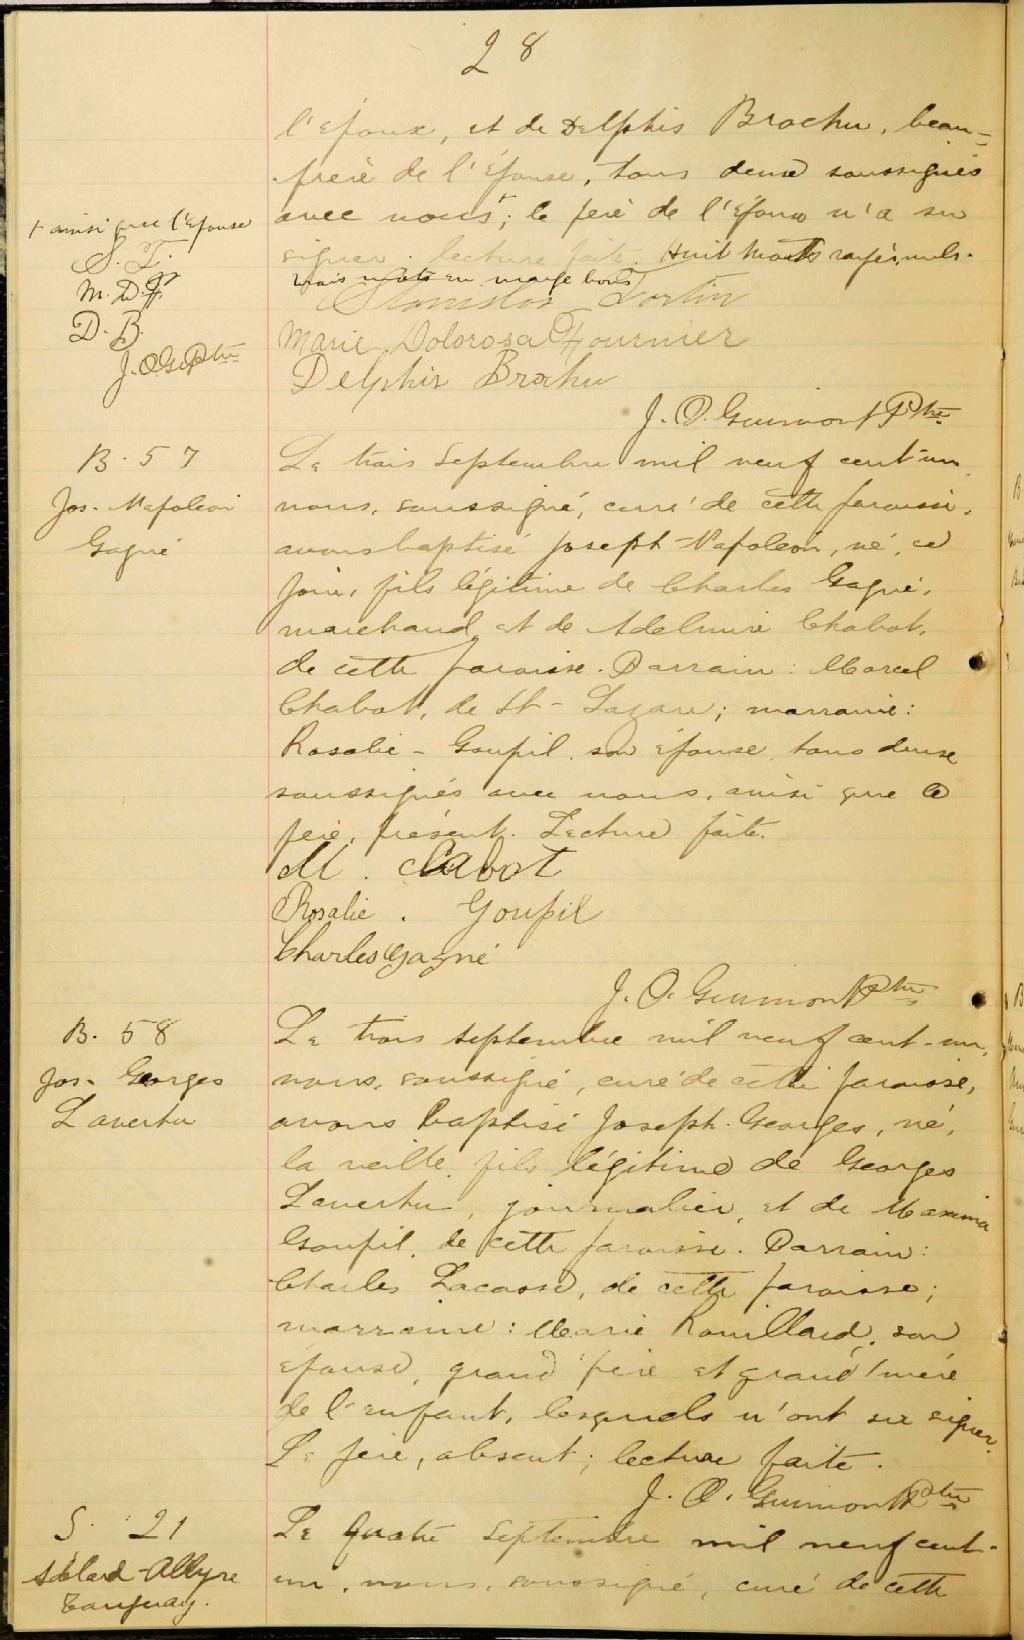 28
l'Epoux, et de Delphis Brochu, beau-
frère de l'Épouse, tous deux soussignés
avec nous +; le père de l'Epoux n'a su
signer. lecture faite. Huit mots rayés nuls.
trois mots en marge bons
+ ainsi que l'Epouse
S. F.
M. D. F.
D. B.
J. O. G. Ptre
Stanislas Fortin
Marie Dolorosa Fournier
Delphis Brochu
J. O. Guimont Ptre
B. 57
Jos. Napoléon
Gagné
Le trois Septembre mil neuf cent-un
nous, soussigné, curé de cette paroisse,
avons baptisé Joseph-Napoléon, né, ce
jour, fils légitime de Charles Gagné,
marchand, et de Adelmire Chabot,
de cette paroisse. Parrain: Marcel
Chabot, de St-Lazare; marraine:
Rosalie-Goupil, son épouse, tous deux
soussignés avec nous, ainsi que le
père, présent. Lecture faite.
M. Chabot
Rosalie. Goupil
Charles Gagné
J. O. Guimont Ptre
B. 58
Jos. Georges
Lavertu
Le trois septembre mil neuf cent-un,
nous, soussigné, curé de cette paroisse,
avons baptisé Joseph-Georges, né,
la veille, fils légitime de Georges
Lavertu, journalier, et de Maxima
Goupil, de cette paroisse. Parrain:
Charles Lacasse, de cette paroisse;
marraine: Marie Rouillard, son
épouse, grand'père et grand'mère
de l'enfant, lesquels n'ont su signer.
Le père, absent; lecture faite.
J. O. Guimont Ptre
S. 21
Adélard-Allyre
Tanguay.
Le quatre Septembre mil neuf cent-
un, nous, soussigné, curé de cette